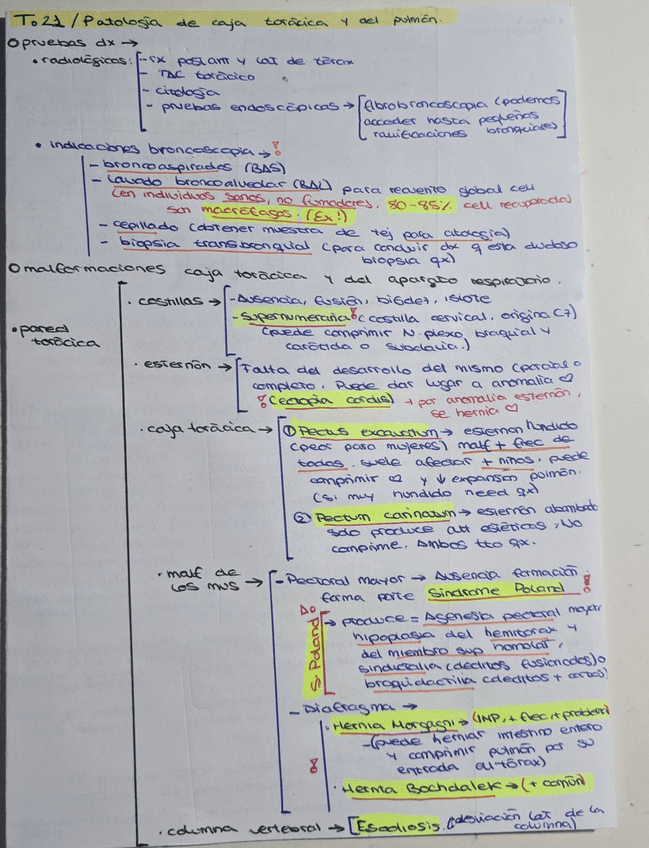 T.21 / Patología de caja torácica y del pulmón.
O pruebas dx →
• radiológicas: - rx postant y lat de tórax
- TAC torácico
- citología
- pruebas endoscópicas → fibrobroncoscopia (podemos
acceder hasta pequeñas
ramificaciones bronquiales)
• indicaciones broncoscopia →
- broncoaspirados (BAS)
- Lavado broncoalveolar (BAL) para recuento global cell
(en individuos sanos, no fumadores, 80-85% cell recuperadas
son macrófagos. (Ex!)
- cepillado (obtener muestra de tej para citología)
- biopsia transbronquial (para concluir dx q esta dudoso
biopsia qx)
O malformaciones caja torácica y del aparato respiratorio.
• pared
torácica
· costillas → - Ausencia, fusión, bifidez,
- Supernumeraria (costilla cervical, origina C7)
(puede comprimir N. plexo, braquial y
carótida o subclavia.)
· esternón → Falta del desarrollo del mismo (parcial o
completo. Puede dar lugar a anomalía ♡
(ectopia cordis) → por anomalia esternón,
se hernia ♡
· caja torácica → ① Pectus excavatum → esternón hundido
(peor para mujeres) malf + frec de
todas. suele afectar + niños, puede
comprimir ♡ y ↓ expansión pulmón.
(si muy hundido need qx)
② Pectum carinatum → esternón abombado
solo produce alt estéticas, No
comprime. Ambos tto qx.
· malf de
los mus → - Pectoral mayor → Ausencia formación
forma parte Síndrome Poland
S. Poland → produce = Agenesia pectoral mayor
hipoplasia del hemitorax y
del miembro sup homolat,
sindactalia (deditos fusionados) o
braquidactilia (deditos + cortos)
- Diafragma →
· Hernia Morgagni → (INP, + frec, + problem)
- (puede herniar intestino entero
y comprimir pulmón por su
entrada al tórax)
· Hernia Bochdalek → (+ común)
· columna vertebral → [Escoliosis. (desviación lat de la
columna)